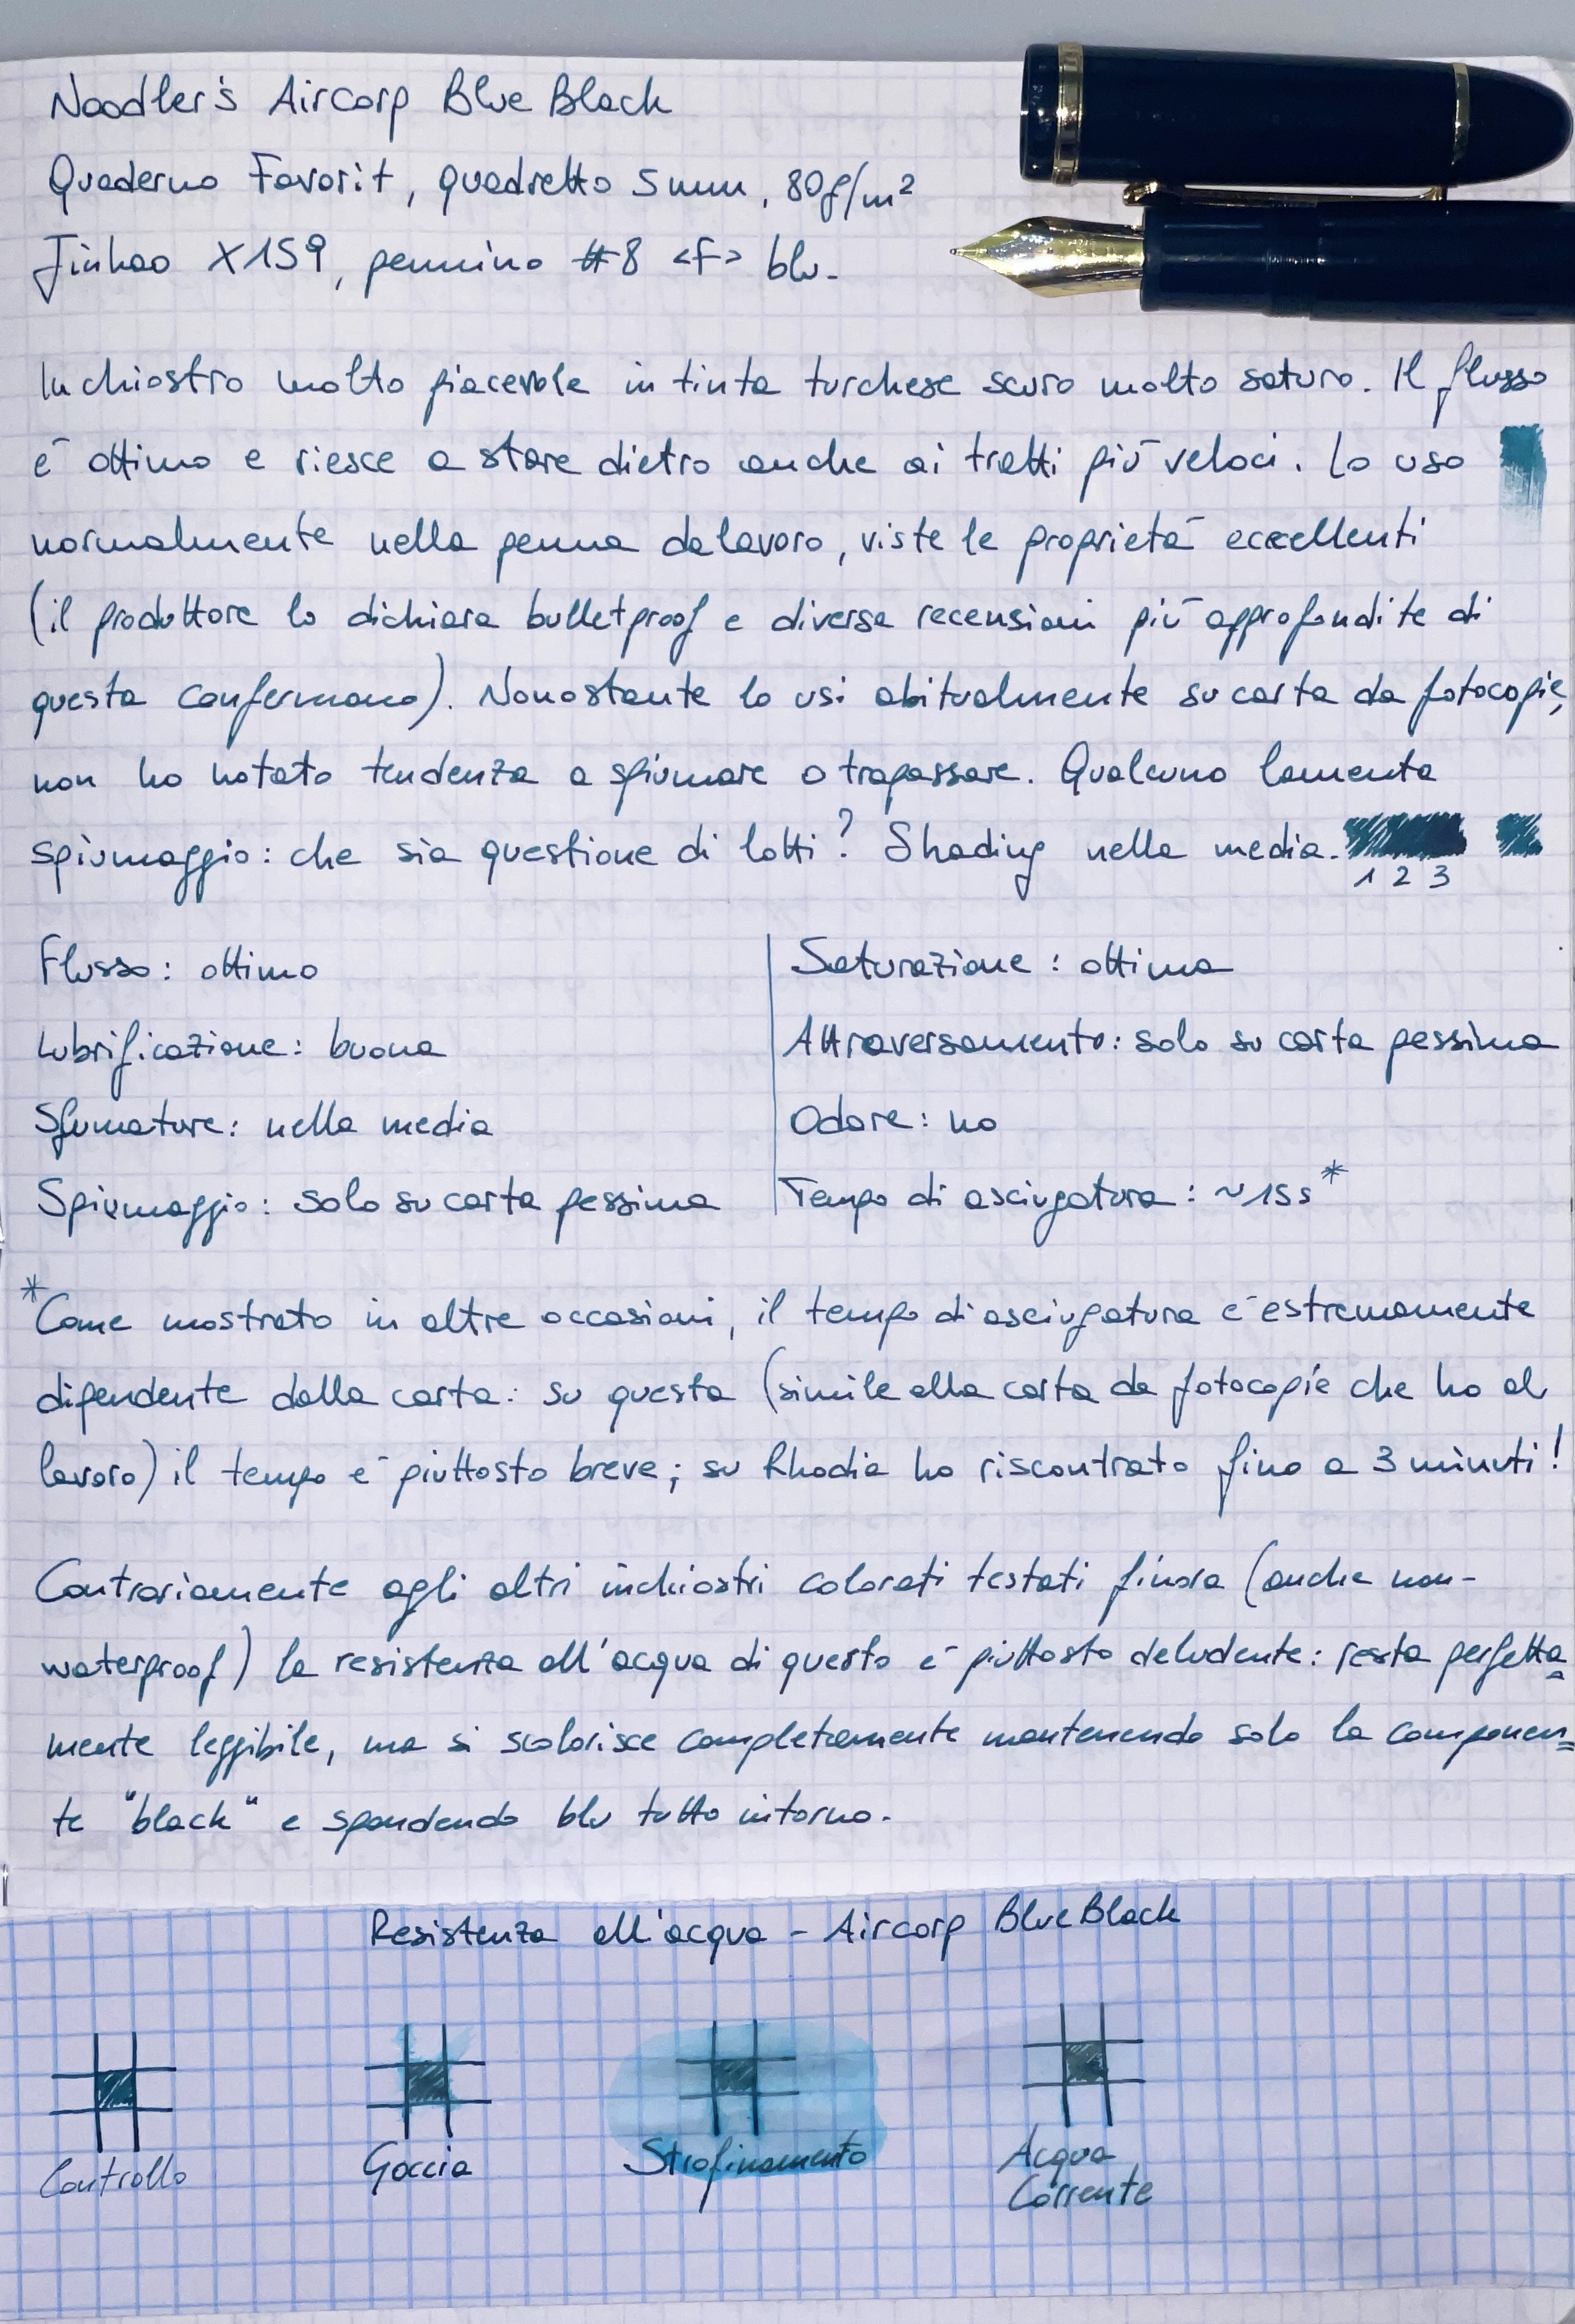 Noodler's Aircorp Blue Black
Quaderno Favorit, quadretto 5mm, 80g/m²
Jinhao X159, pennino #8 <F> blu.
Inchiostro molto piacevole in tinta turchese scuro molto saturo. Il flusso
è ottimo e riesce a stare dietro anche ai tratti più veloci. Lo uso
normalmente nella penna da lavoro, viste le proprietà eccellenti
(il produttore lo dichiara bulletproof e diverse recensioni più approfondite di
questa confermano). Nonostante lo usi abitualmente su carta da fotocopie,
non ho notato tendenza a spiumare o trapassare. Qualcuno lamenta
spiumaggio: che sia questione di lotti? Shading nella media.
1 2 3
Flusso: ottimo
Lubrificazione: buona
Sfumature: nella media
Spiumaggio: solo su carta pessima
Saturazione: ottima
Attraversamento: solo su carta pessima
Odore: no
Tempo di asciugatura: ~15s*
*Come mostrato in altre occasioni, il tempo di asciugatura è estremamente
dipendente dalla carta: su questa (simile alla carta da fotocopie che ho al
lavoro) il tempo è piuttosto breve; su Rhodia ho riscontrato fino a 3 minuti!
Contrariamente agli altri inchiostri colorati testati finora (anche non-
waterproof) la resistenza all'acqua di questo è piuttosto deludente: resta perfetta=
mente leggibile, ma si scolorisce completamente mantenendo solo la componen=
te "black" e spandendo blu tutto intorno.
Resistenza all'acqua - Aircorp BlueBlack
Controllo
Goccia
Strofinamento
Acqua
Corrente